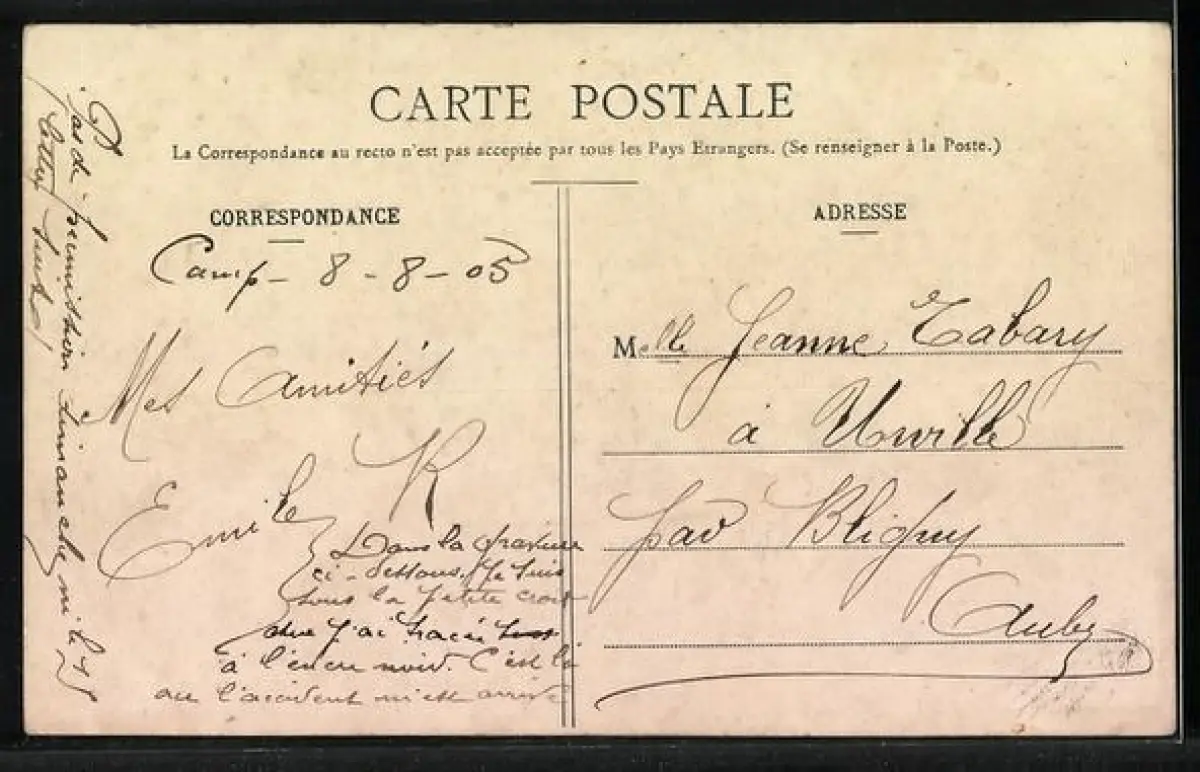 CARTE POSTALE
La Correspondance au recto n'est pas acceptée par tous les Pays Etrangers. (Se renseigner à la Poste.)
CORRESPONDANCE
Camp - 8 - 8 - 05
Mes Amitiés
Emile R
Dans la gravure
ci-dessous, je suis
sous la petite croix
que j'ai tracée
à l'encre noire. C'est là
ou l'accident m'est arrivé
Pas de permission dimanche ni le 15
ADRESSE
Melle Jeanne Tabary
à Urville
par Bligny
Aube